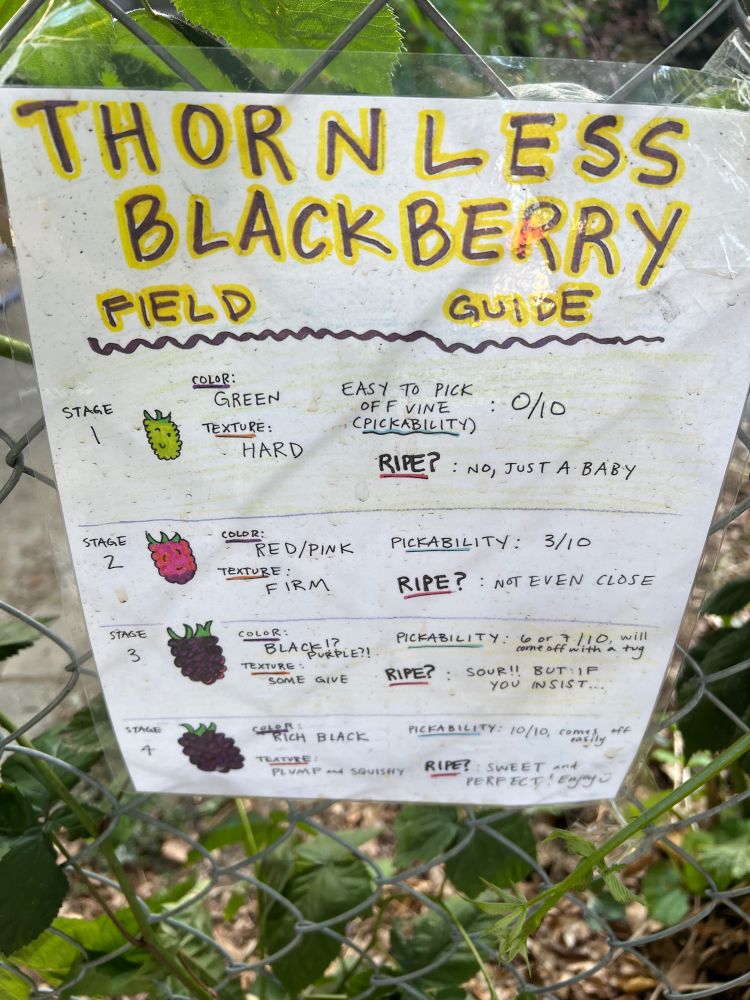 THORNLESS
BLACKBERRY
FIELD GUIDE
STAGE 1
COLOR: GREEN
TEXTURE: HARD
EASY TO PICK
OFF VINE
(PICKABILITY) : 0/10
RIPE? : NO, JUST A BABY
STAGE 2
COLOR: RED/PINK
TEXTURE: FIRM
PICKABILITY: 3/10
RIPE? : NOT EVEN CLOSE
STAGE 3
COLOR: BLACK!?
PURPLE?!
TEXTURE: SOME GIVE
PICKABILITY: 6 or 7/10, will
come off with a tug
RIPE? : SOUR!! BUT IF
YOU INSIST...
STAGE 4
COLOR: RICH BLACK
TEXTURE: PLUMP and SQUISHY
PICKABILITY: 10/10, comes off
easily
RIPE? : SWEET and
PERFECT! Enjoy